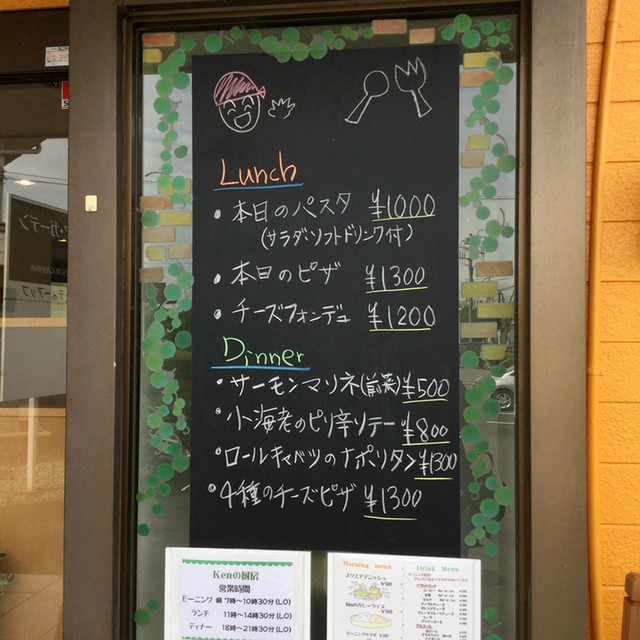 Lunch
・本日のパスタ ¥1000
(サラダ・ソフトドリンク付)
・本日のピザ ¥1300
・チーズフォンデュ ¥1200
Dinner
・サーモンマリネ(前菜) ¥500
・小海老のピリ辛ソテー ¥800
・ロールキャベツのナポリタン ¥1300
・4種のチーズピザ ¥1300
Kenの厨房
営業時間
モーニング 朝 7時〜10時30分(L.O)
ランチ 11時〜14時30分(L.O)
ディナー 18時〜21時30分(L.O)
Morning menu
スクエアマニッシュ
¥500
Kenのカレーライス
Drink Menu
ガーデン
ティーアップ